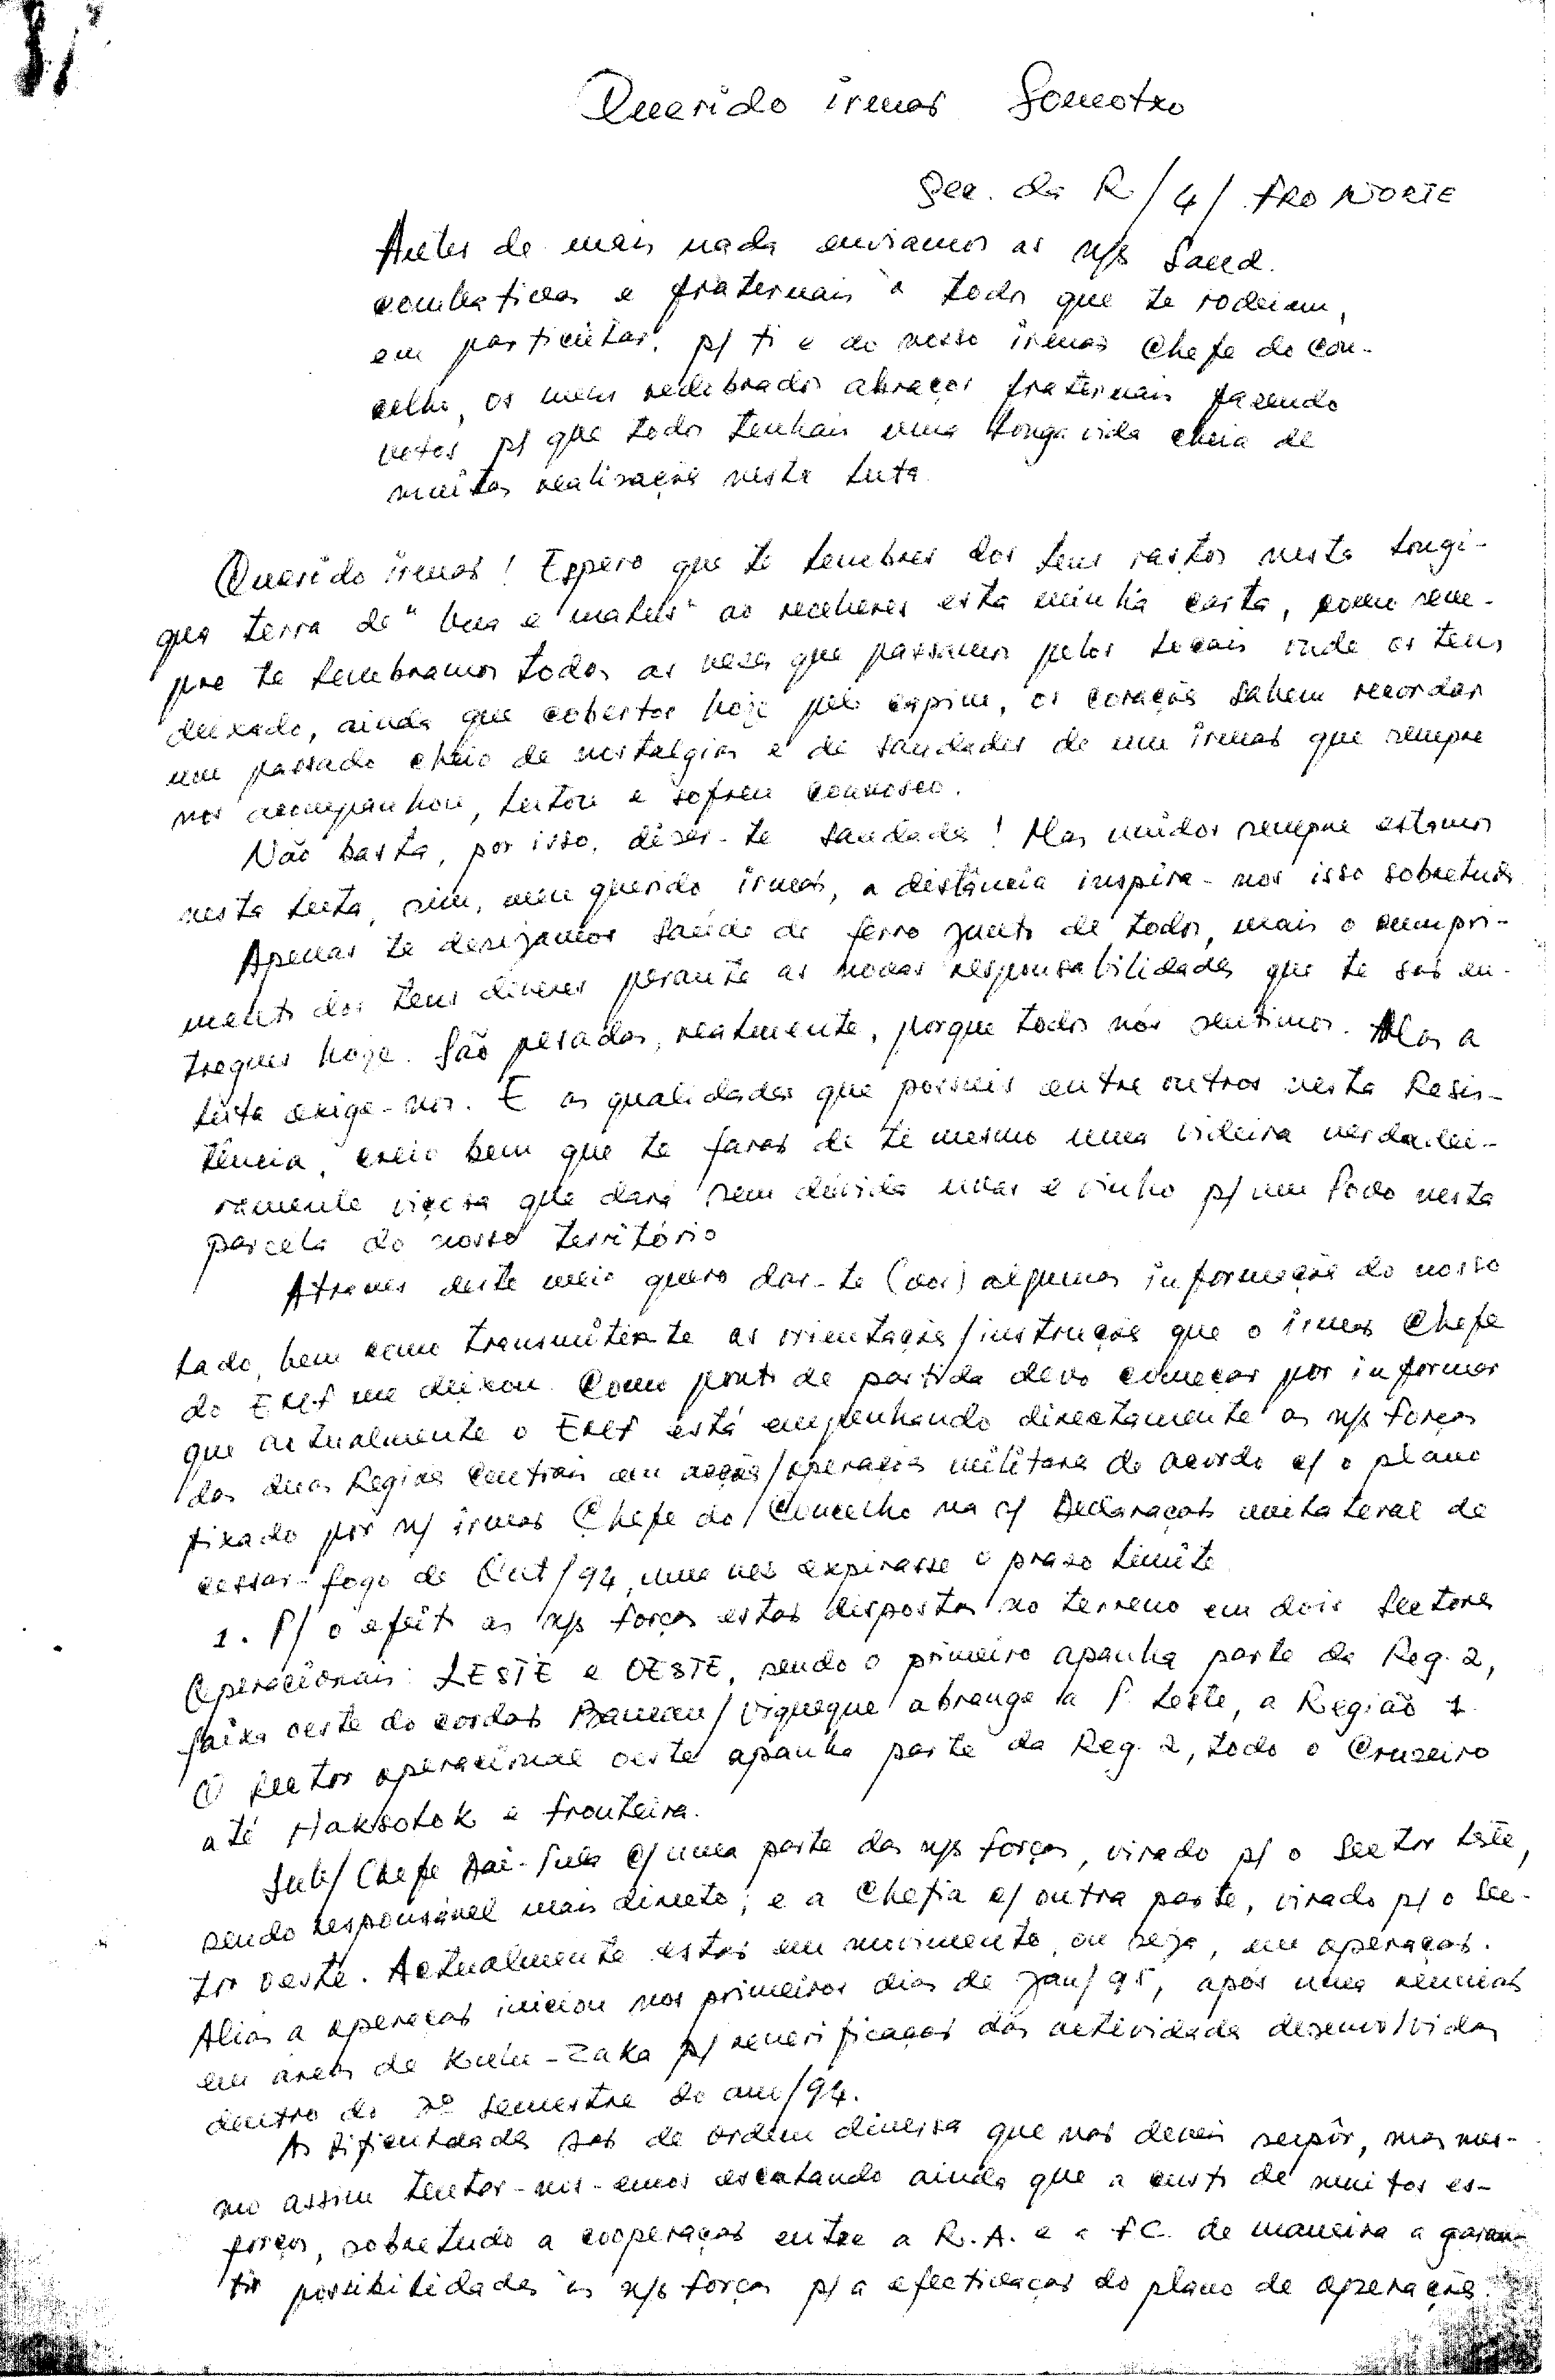 Querido irmão Somotxo
Sec. da R/4/ FRO NORTE
Antes de mais nada enviamos as n/s Saud.
combativas e fraternais a todos que te rodeiam,
em particular, p/ ti e ao nosso irmão Chefe do Con-
celho, os meus redobrados abraços fraternais fazendo
votos p/ que todos tenhais uma longa vida cheia de
muitas realizações nesta luta.
Querido irmão! Espero que te lembres dos teus rastos nesta longi-
qua terra de " e " ao receberes esta minha carta, como sem-
pre te lembramos todas as vezes que passamos pelos locais onde os tens
deixado, ainda que cobertos hoje pelo capim, os corações sabem recordar
um passado cheio de nostalgias e de saudades de um irmão que sempre
nos acompanhou, lutou e sofreu connosco.
Não basta, por isso, dizer-te saudades! Mas unidos sempre estamos
nesta luta, sim, meu querido irmão, a distância inspira-nos isso sobretudo
Apenas te desejamos saúde de ferro junto de todos, mais o cumpri-
mento dos teus deveres perante as novas responsabilidades que te são en-
tregues hoje. São pesadas, realmente, porque todos nós sentimos. Mas a
luta exige-nos. E as qualidades que possuis entre outros nesta Resis-
tência, creio bem que te farão de ti mesmo uma videira verdadei-
ramente viçosa que dará sem dúvida uvas e vinho p/ um Povo nesta
parcela do nosso território
Atraves deste meio quero dar-te (vos) algumas informações do nosso
lado, bem como transmitir-te as orientações/instruções que o irmão Chefe
do EMF me deixou. Como ponto de partida devo começar por informar
que actualmente o EMF está empenhando directamente as n/s forças
das duas Regiões Centrais em acções/operações militares de acordo c/ o plano
fixado por n/ irmão Chefe do Concelho na s/ Declaração unilateral de
cessar-fogo de Out/94, uma vez expirasse o prazo limite
1. P/ o efeito as n/s forças estão dispostas no terreno em dois Sectores
Operacionais: LESTE e OESTE, sendo o primeiro apanha parte da Reg. 2,
faixa oeste do cordão Baucau/Viqueque abrange a P. Leste, a Região 1.
O Sector operacional oeste apanha parte da Reg. 2, todo o Cruzeiro
até Haksolok e fronteira.
Sub/Chefe Lai-Sula c/ uma parte das n/s forças, virado p/ o Sector Leste,
sendo responsável mais directo; e a Chefia c/ outra parte, virado p/ o Sec-
tor oeste. Actualmente estão em movimento, ou seja, em operação.
Alias a operação iniciou nos primeiros dias de Jan/95, após uma reunião
em áreas de Kulu-Laka p/ reverificação das actividades desenvolvidas
dentro do 2º semestre do ano/94.
As dificuldades são de ordem diversa que nos deveis supôr, mas mes-
mo assim tentar-nos-emos escalando ainda que a custo de muitos es-
forços, sobretudo a cooperação entre a R.A. e a F.C. de maneira a garan-
tir possibilidades às n/s forças p/ a efectivação do plano de operações.